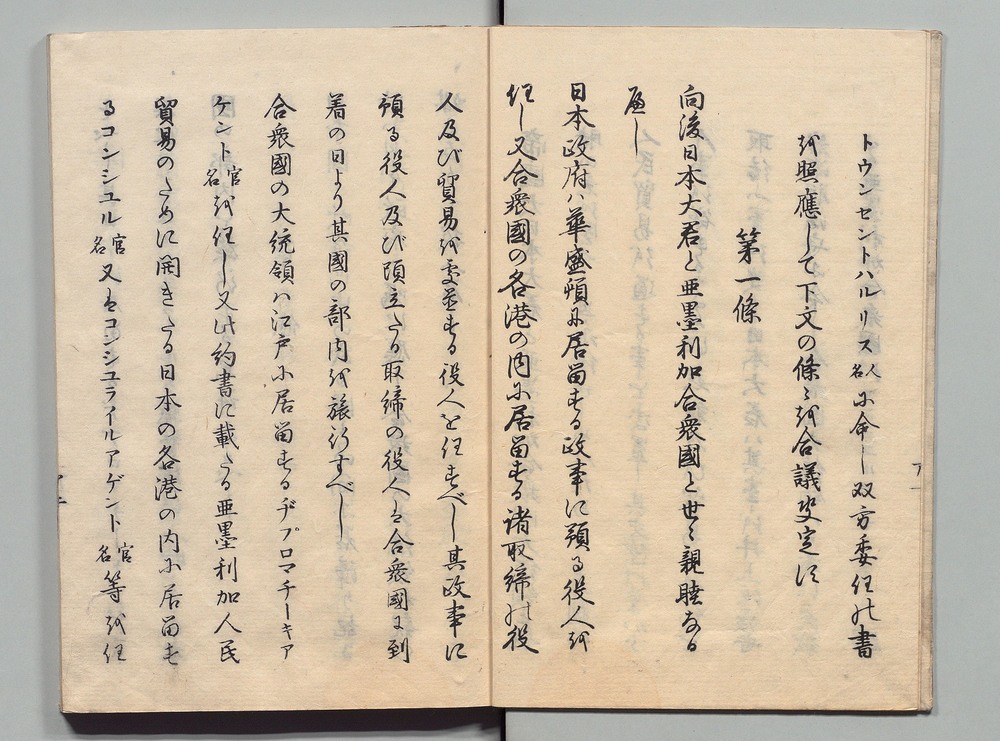 トウンセントハルリス人名に命し双方委任の書
を照應して下文の條々を合議決定す
第一條
向後日本大君と亜墨利加合衆國と世々親睦なる
へし
日本政府ハ華盛頓に居留する政事に預る役人を
任し又合衆國の各港の内に居留する諸取締の役
人及び貿易を處置する役人を任すべし其政事に
預る役人及び頭立たる取締の役人ハ合衆國に到
着の日より其國の部内を旅行すべし
合衆國の大統領ハ江戸に居留するヂプロマチーキア
ケント官名を任し又此約書に載る亜墨利加人民
貿易のために開きたる日本の各港の内に居留す
るコンシュル官名又ハコンシュライルアゲント官名等を任